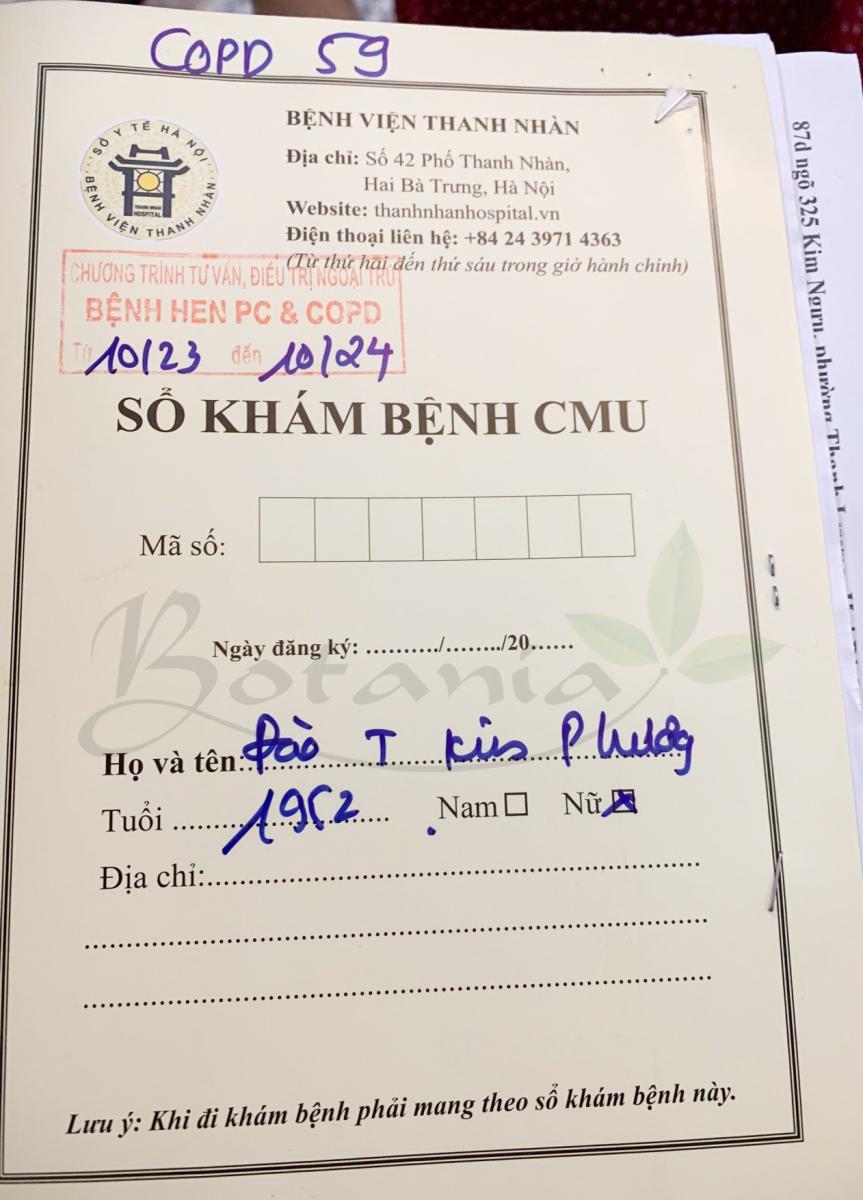 COPD 59
SỞ Y TẾ HÀ NỘI
THANH NHAN
HOSPITAL
BỆNH VIỆN THANH NHÀN
BỆNH VIỆN THANH NHÀN
Địa chỉ: Số 42 Phố Thanh Nhàn,
Hai Bà Trưng, Hà Nội
Website: thanhnhanhospital.vn
Điện thoại liên hệ: +84 24 3971 4363
(Từ thứ hai đến thứ sáu trong giờ hành chính)
CHƯƠNG TRÌNH TƯ VẤN, ĐIỀU TRỊ NGOẠI TRÚ
BỆNH HEN PC & COPD
Từ 10/23 đến 10/24
SỔ KHÁM BỆNH CMU
Mã số:
Ngày đăng ký: ........../......../20......
Botania
Họ và tên: Đào T Kim Phương
Tuổi 1952 Nam Nữ
Địa chỉ:
Lưu ý: Khi đi khám bệnh phải mang theo sổ khám bệnh này.
87d ngõ 325 Kim Ngưu, phường Thanh